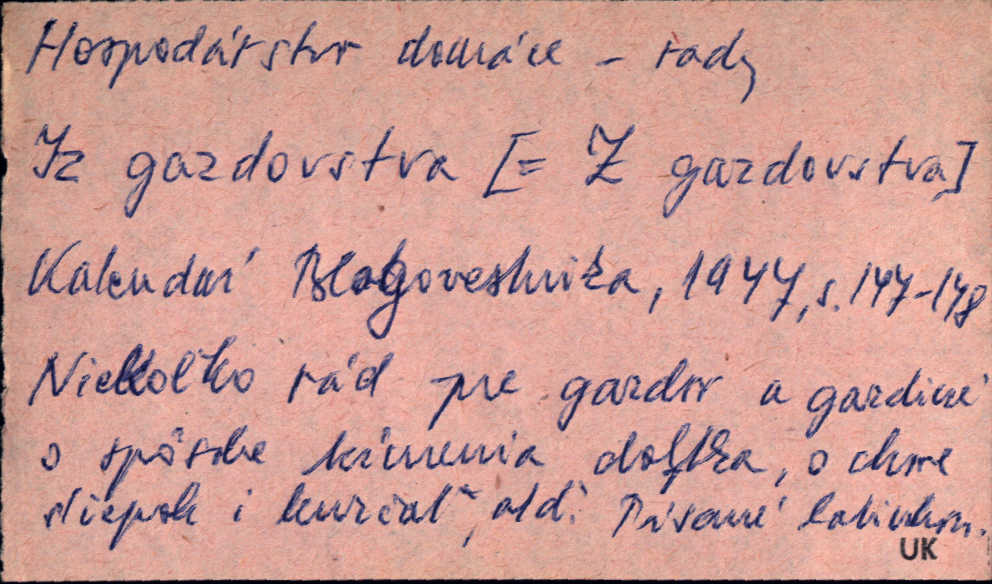 Hospodárstvo domáce - rady
Iz gazdovstva [= Z gazdovstva]
Kalendar' Blagovestnika, 1947, s. 147-148
Niekoľko rád pre gazdov a gazdiné
o spôsobe kŕmenia dobytka, o chove
sliepok i kurčiat, atď. Písané latinkou.
UK